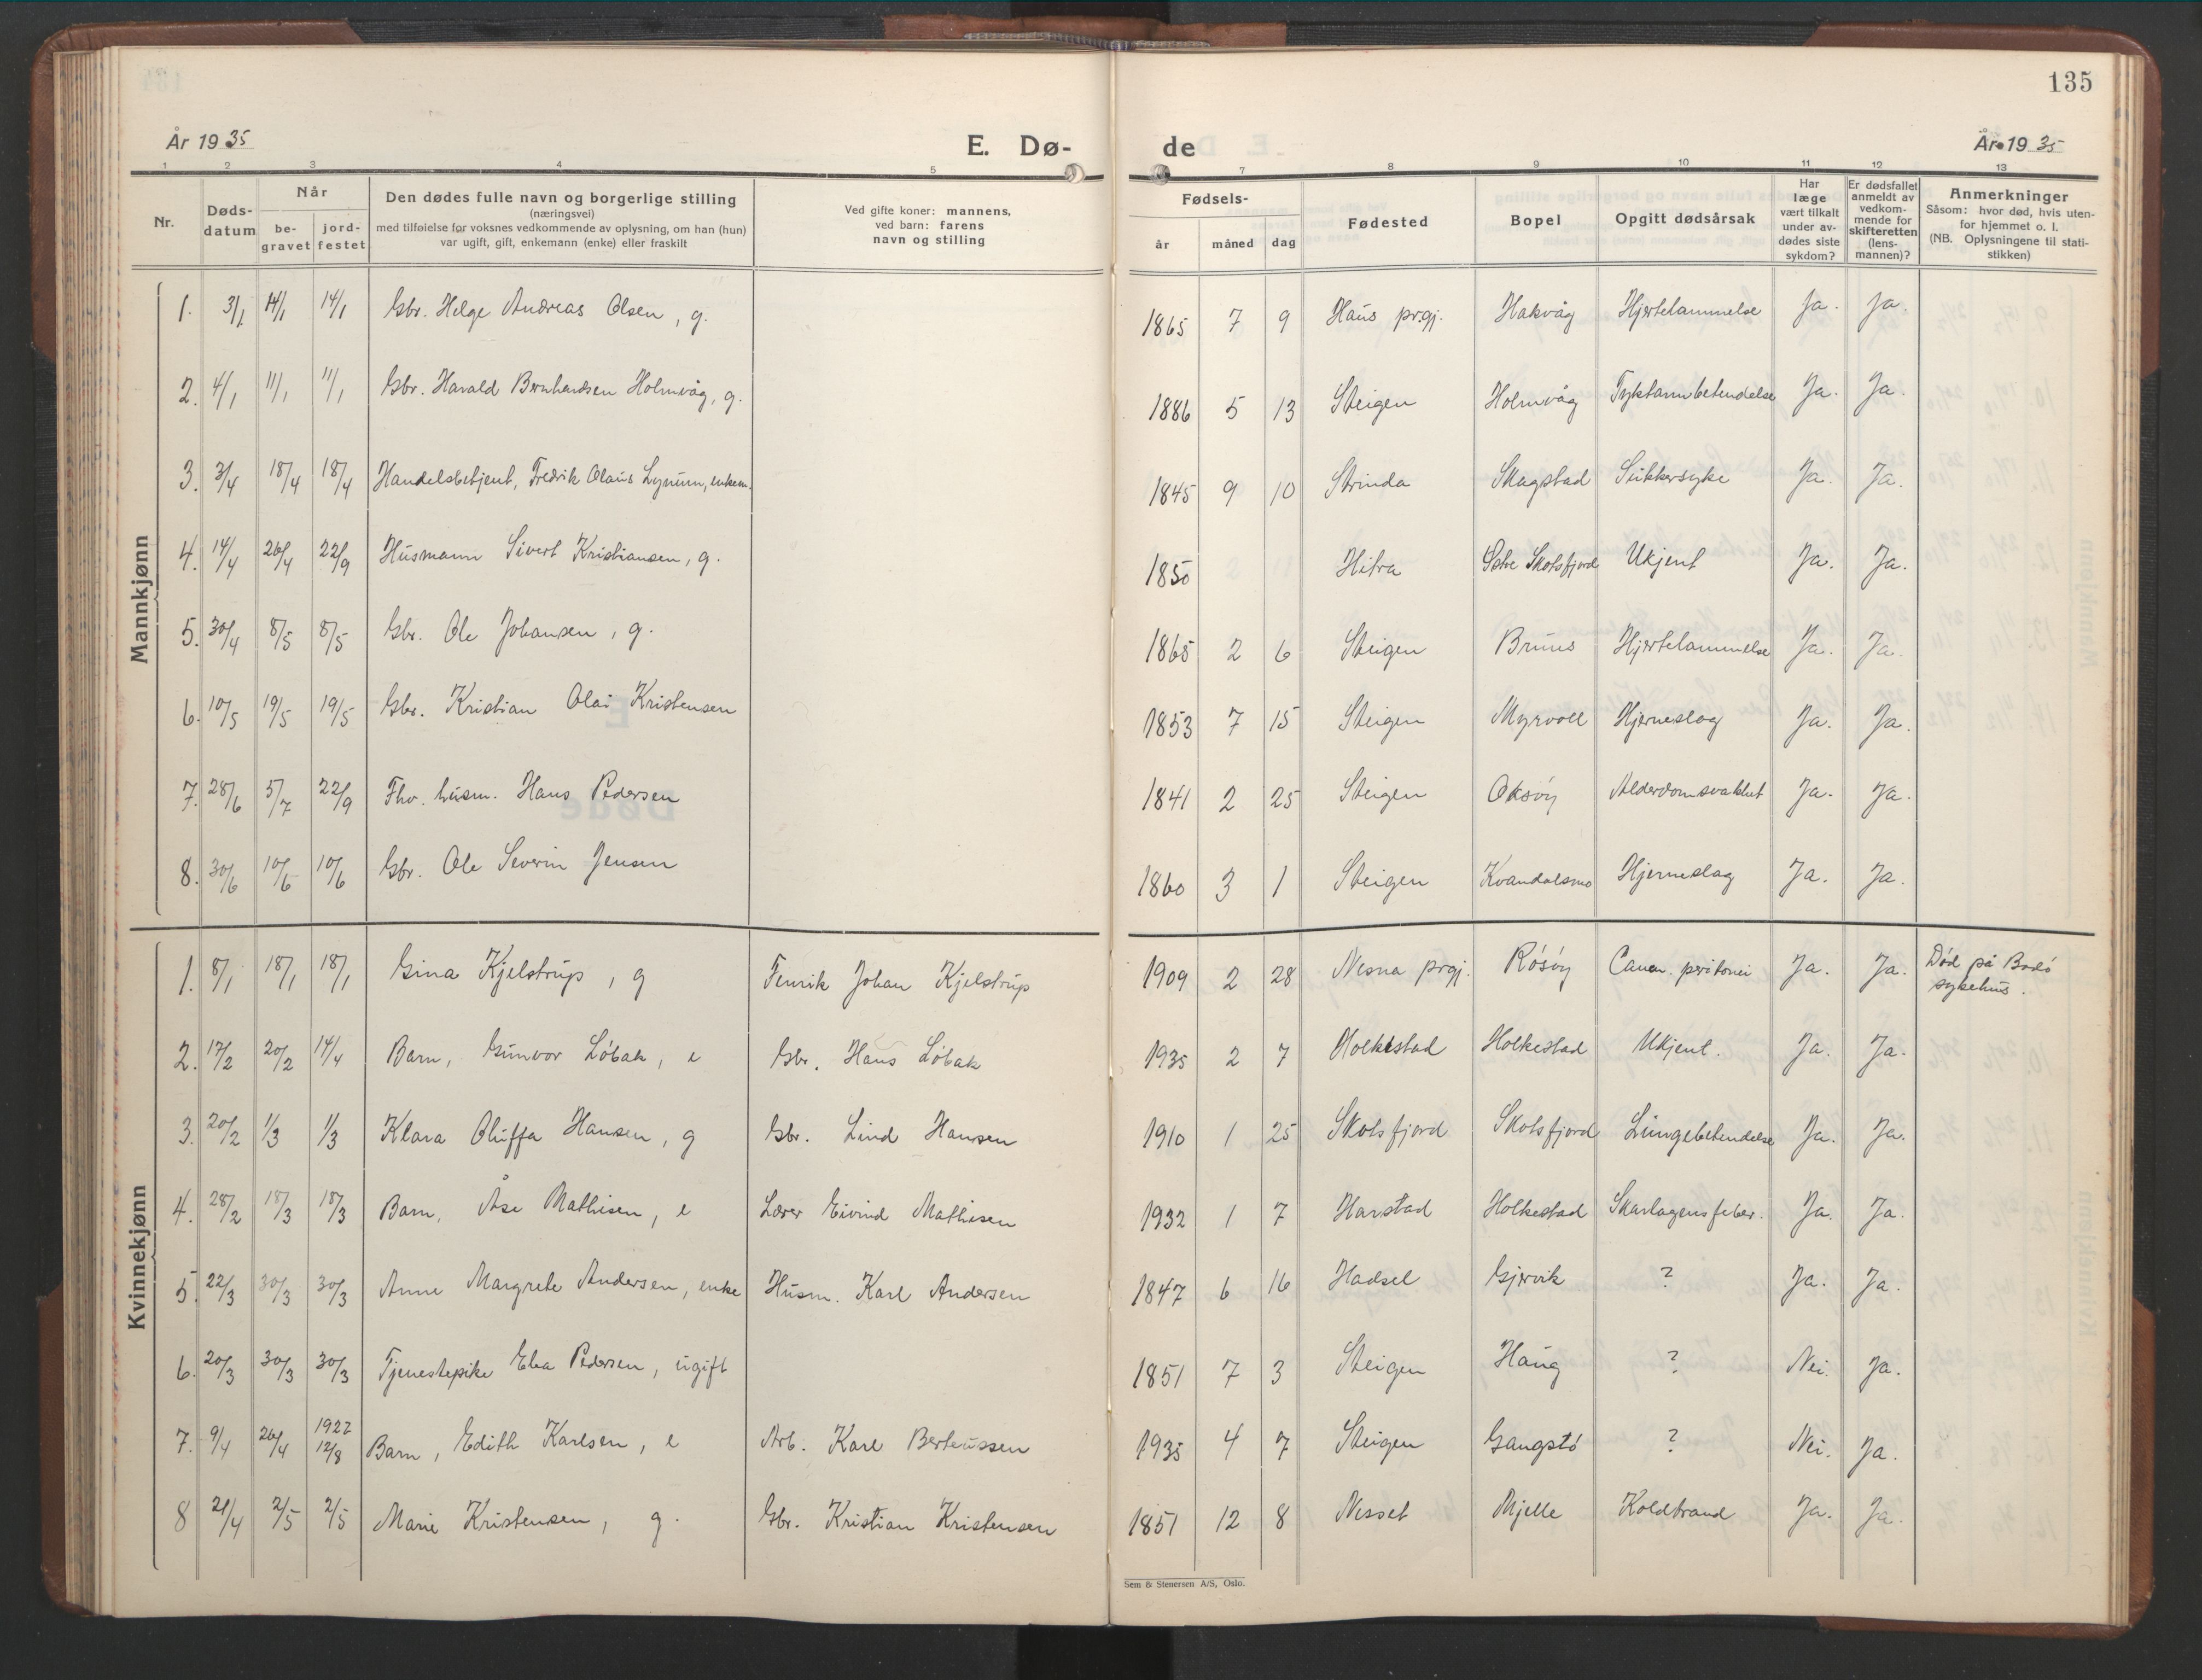 135
År 1935
E. Dø-
de
År 1935
1 2 3 4 5 7 8 9 10 11 12 13
Nr.
Døds-
datum
Når
be-
gravet
jord-
festet
Den dødes fulle navn og borgerlige stilling
(næringsvei)
med tilføielse før voksnes vedkommende av oplysning, om han (hun)
var ugift, gift, enkemann (enke) eller fraskilt
Ved gifte koner: mannens,
ved barn: farens
navn og stilling
Fødsels-
år måned dag
Fødested
Bopel
Opgitt dødsårsak
Har
læge
vært tilkalt
under av-
dødes siste
sykdom?
Er dødsfallet
anmeldt av
vedkom-
mende for
skifteretten
(lens-
mannen)?
Anmerkninger
Såsom: hvor død, hvis uten-
for hjemmet o. l.
(NB. Oplysningene til stati-
stikken)
Mannkjønn
1. 3/1 14/1 14/1 Gbr. Helge Andreas Olsen, g. 1865 7 9 Haus prgj. Hakvåg Hjertelammelse Ja. Ja.
2. 4/1 11/1 11/1 Gbr. Harald Bernhardsen Holmvåg, g. 1886 5 13 Steigen Holmvåg Tyktarmbetendelse Ja. Ja.
3. 3/4 18/4 18/4 Handelsbetjent, Fredrik Olaus Lynum, enkem. 1845 9 10 Strinda Skagstad Sukkersyke Ja. Ja.
4. 14/4 26/4 22/9 Husmann Sivert Kristiansen, g. 1850 Hitra Østre Skotsfjord Ukjent Ja. Ja.
5. 30/4 8/5 8/5 Gbr. Ole Johansen, g. 1865 2 6 Steigen Brunes Hjertelammelse Ja. Ja.
6. 10/5 19/5 19/5 Gbr. Kristian Olai Kristensen 1853 7 15 Steigen Myrvoll Hjerneslag Ja. Ja.
7. 28/6 5/7 22/9 Fhv. husm. Hans Pedersen 1841 2 25 Steigen Oksøy Alderdomsvakhet Ja. Ja.
8. 30/6 10/6 10/6 Gbr. Ole Severin Jensen 1860 3 1 Steigen Kvandalsmo Hjerneslag Ja. Ja.
Kvinnekjønn
1. 8/1 18/1 18/1 Gina Kjelstrup, g Fenrik Johan Kjelstrup 1909 2 28 Nesna prgj. Røsøy Cancr. peritonei Ja. Ja. Død på Bodø
sykehus.
2. 17/2 20/2 14/4 Barn, Gunvor Løbak, e Gbr. Hans Løbak 1935 2 7 Holkestad Holkestad Ukjent. Ja. Ja.
3. 20/2 1/3 1/3 Klara Oluffa Hansen, g Gbr. Lind Hansen 1910 1 25 Skotsfjord Skotsfjord Lungebetendelse Ja. Ja.
4. 28/2 18/3 18/3 Barn, Åse Mathisen, e Lærer Eivind Mathisen 1932 1 7 Harstad Holkestad Skarlagensfeber. Ja. Ja.
5. 22/3 30/3 30/3 Anne Margrete Andersen, enke Husm. Karl Andersen 1847 6 16 Hadsel Gjervik ? Ja. Ja.
6. 20/3 30/3 30/3 Tjenestepike Elea Pedersen, ugift 1851 7 3 Steigen Haug ? Nei. Ja.
7. 9/4 26/4 1927 12/8 Barn, Edith Karlsen, e Arb. Karl Berteussen 1935 4 7 Steigen Gangstø ? Nei. Ja.
8 21/4 2/5 2/5 Marie Kristensen, g. Gbr. Kristian Kristensen 1851 12 8 Nesset Mjelle Koldbrand Ja. Ja.
Sem & Stenersen A/S, Oslo.